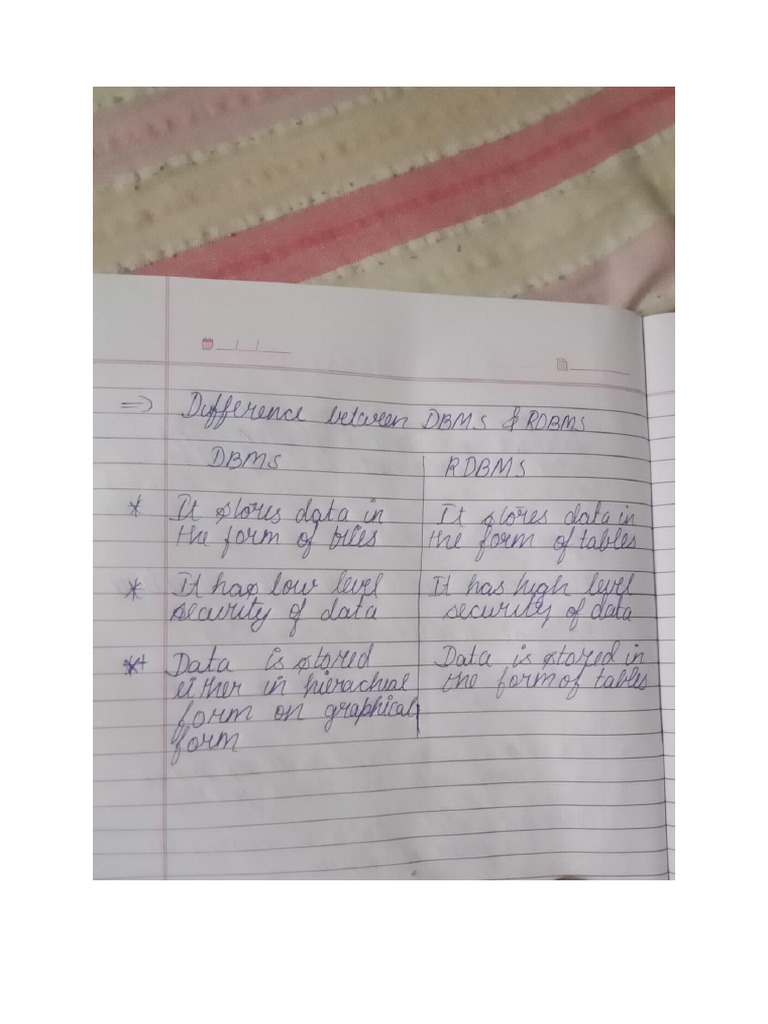 => Difference between DBMS & RDBMS
DBMS RDBMS
* It stores data in It stores data in
the form of files the form of tables
* It has low level It has high level
security of data security of data
* Data is stored Data is stored in
either in hierachial the form of tables
form on graphical
form